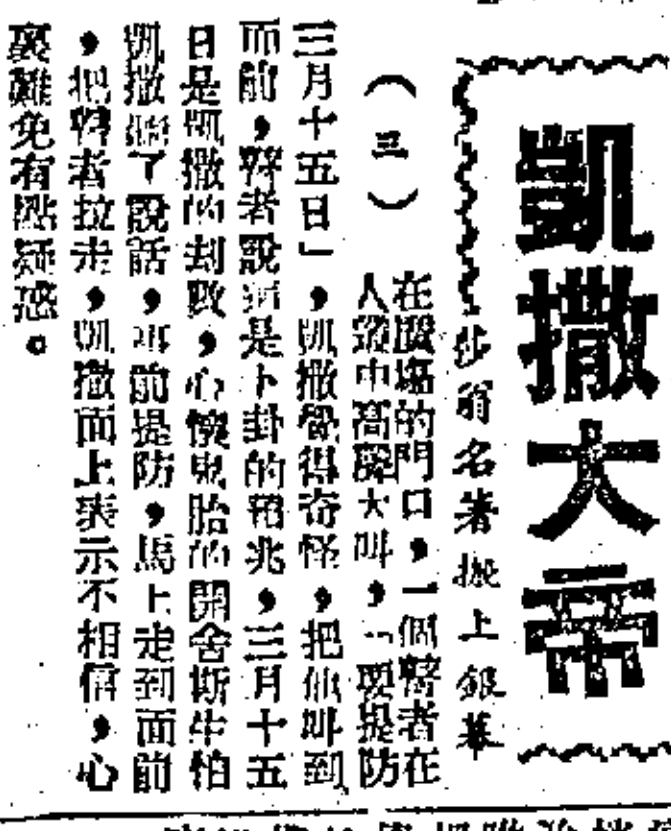 凱撒大帝
莎翁名著搬上銀幕
（三）
在廣場的門口，一個瞽者在
人叢中高聲大叫，「要提防
三月十五日」，凱撒覺得奇怪，把他叫到
面前，瞽者說這是卜卦的預兆，三月十五
日是凱撒的劫數，心懷鬼胎的開舍斯生怕
凱撒聽了說話，事前提防，馬上走到面前
，把瞽者拉走，凱撒面上表示不相信，心
裏難免有點疑惑。